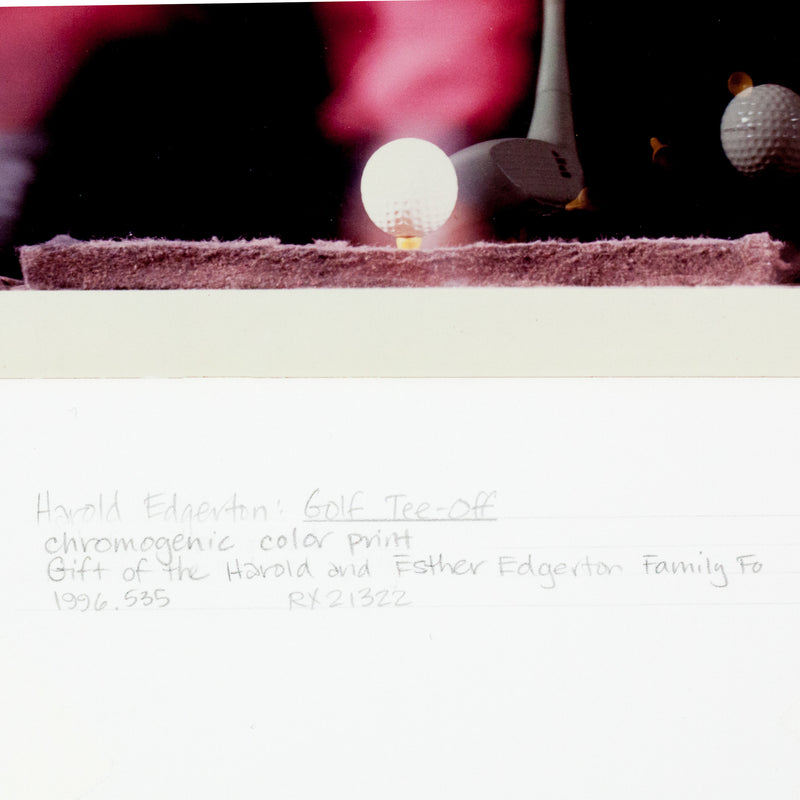 Harold Edgerton: Golf Tee-Off
chromogenic color print
Gift of the Harold and Esther Edgerton Family Fo
1996.535 RX21322